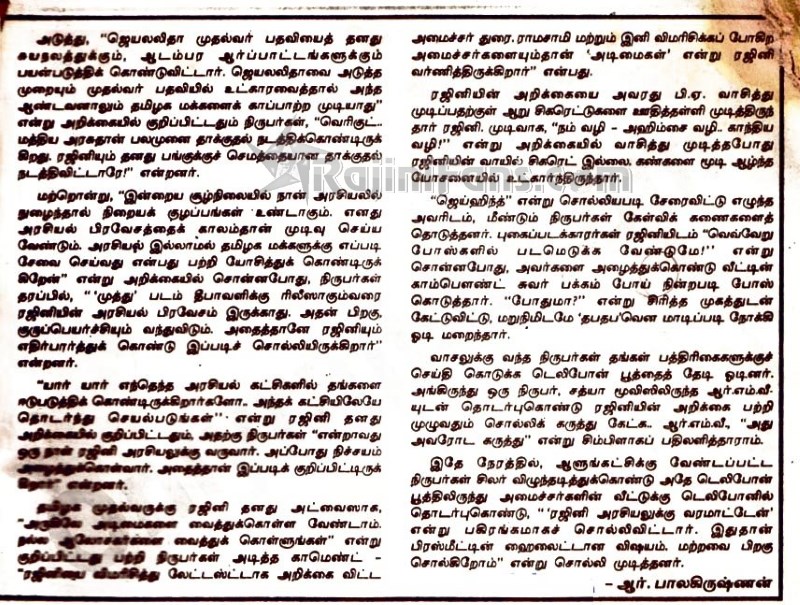 அடுத்து, "ஜெயலலிதா முதல்வர் பதவியைத் தனது
சுயநலத்துக்கும், ஆடம்பர ஆர்ப்பாட்டங்களுக்கும்
பயன்படுத்திக் கொண்டுவிட்டார். ஜெயலலிதாவை அடுத்த
முறையும் முதல்வர் பதவியில் உட்காரவைத்தால் அந்த
ஆண்டவனாலும் தமிழக மக்களைக் காப்பாற்ற முடியாது"
என்று அறிக்கையில் குறிப்பிட்டதும் நிருபர்கள், "வெரிகுட்..
மத்திய அரசுதான் பலமுனை தாக்குதல் நடத்திக்கொண்டிருக்
கிறது. ரஜினியும் தனது பங்குக்குச் செமத்தையான தாக்குதல்
நடத்திவிட்டாரே!" என்றனர்.
மற்றொன்று, "இன்றைய சூழ்நிலையில் நான் அரசியலில்
நுழைந்தால் நிறையக் குழப்பங்கள் உண்டாகும். எனது
அரசியல் பிரவேசத்தைக் காலம்தான் முடிவு செய்ய
வேண்டும். அரசியல் இல்லாமல் தமிழக மக்களுக்கு எப்படி
சேவை செய்வது என்பது பற்றி யோசித்துக் கொண்டிருக்
கிறேன்" என்று அறிக்கையில் சொன்னபோது, நிருபர்கள்
தரப்பில், "'முத்து' படம் தீபாவளிக்கு ரிலீஸாகும்வரை
ரஜினியின் அரசியல் பிரவேசம் இருக்காது. அதன் பிறகு,
குருப்பெயர்ச்சியும் வந்துவிடும். அதைத்தானே ரஜினியும்
எதிர்பார்த்துக் கொண்டு இப்படிச் சொல்லியிருக்கிறார்"
என்றனர்.
"யார் யார் எந்தெந்த அரசியல் கட்சிகளில் தங்களை
ஈடுபடுத்திக் கொண்டிருக்கிறார்களோ.. அந்தக் கட்சியிலேயே
தொடர்ந்து செயல்படுங்கள்" என்று ரஜினி தனது
அறிக்கையில் குறிப்பிட்டதும், அதற்கு நிருபர்கள் "என்றாவது
ஒரு நாள் ரஜினி அரசியலுக்கு வருவார். அப்போது நிச்சயம்
அழைத்துக்கொள்வார். அதைத்தான் இப்படிக் குறிப்பிட்டிருக்
கிறார்" என்றனர்.
தமிழக முதல்வருக்கு ரஜினி தனது அட்வைஸாக,
"அருகிலே அடிமைகளை வைத்துக்கொள்ள வேண்டாம்.
நல்ல ஆலோசகர்களை வைத்துக் கொள்ளுங்கள்" என்று
குறிப்பிட்டது பற்றி நிருபர்கள் அடித்த காமெண்ட் –
"ரஜினியை விமர்சித்து லேட்டஸ்ட்டாக அறிக்கை விட்ட
அமைச்சர் துரை. ராமசாமி மற்றும் இனி விமரிசிக்கப் போகிற
அமைச்சர்களையும்தான் 'அடிமைகள்' என்று ரஜினி
வர்ணித்திருக்கிறார்" என்பது.
ரஜினியின் அறிக்கையை அவரது பி.ஏ. வாசித்து
முடிப்பதற்குள் ஆறு சிகரெட்டுகளை ஊதித்தள்ளி முடித்திருந்
தார் ரஜினி. முடிவாக, "நம் வழி – அஹிம்சை வழி.. காந்திய
வழி!" என்று அறிக்கையில் வாசித்து முடித்தபோது
ரஜினியின் வாயில் சிகரெட் இல்லை. கண்களை மூடி ஆழ்ந்த
யோசனையில் உட்கார்ந்திருந்தார்.
RajiniFans.com
"ஜெய்ஹிந்த்" என்று சொல்லியபடி சேரைவிட்டு எழுந்த
அவரிடம், மீண்டும் நிருபர்கள் கேள்விக் கணைகளைத்
தொடுத்தனர். புகைப்படக்காரர்கள் ரஜினியிடம் "வெவ்வேறு
போஸ்களில் படமெடுக்க வேண்டுமே!" என்று
சொன்னபோது, அவர்களை அழைத்துக்கொண்டு வீட்டின்
காம்பௌண்ட் சுவர் பக்கம் போய் நின்றபடி போஸ்
கொடுத்தார். "போதுமா?" என்று சிரித்த முகத்துடன்
கேட்டுவிட்டு, மறுநிமிடமே 'தபதப'வென மாடிப்படி நோக்கி
ஓடி மறைந்தார்.
வாசலுக்கு வந்த நிருபர்கள் தங்கள் பத்திரிகைகளுக்குச்
செய்தி கொடுக்க டெலிபோன் பூத்தைத் தேடி ஓடினர்.
அங்கிருந்து ஒரு நிருபர், சத்யா மூவிஸிலிருந்த ஆர்.எம்.வீ-
யுடன் தொடர்புகொண்டு ரஜினியின் அறிக்கை பற்றி
முழுவதும் சொல்லிக் கருத்து கேட்க.. ஆர்.எம்.வீ., "அது
அவரோட கருத்து" என்று சிம்பிளாகப் பதிலளித்தாராம்.
இதே நேரத்தில், ஆளுங்கட்சிக்கு வேண்டப்பட்ட
நிருபர்கள் சிலர் விழுந்தடித்துக்கொண்டு அதே டெலிபோன்
பூத்திலிருந்து அமைச்சர்களின் வீட்டுக்கு டெலிபோனில்
தொடர்புகொண்டு, "'ரஜினி அரசியலுக்கு வரமாட்டேன்'
என்று பகிரங்கமாகச் சொல்லிவிட்டார். இதுதான்
பிரஸ்மீட்டின் ஹைலைட்டான விஷயம். மற்றவை பிறகு
சொல்கிறோம்" என்று சொல்லி முடித்தனர்.
– ஆர். பாலகிருஷ்ணன்